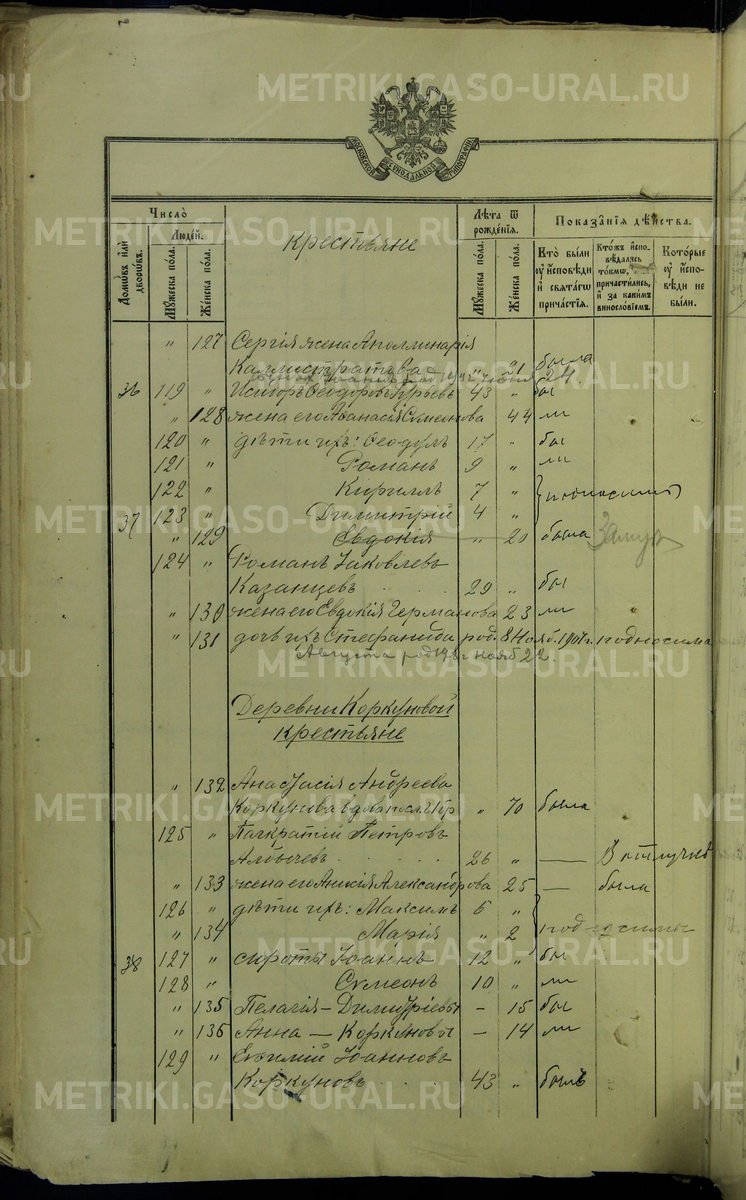 METRIKI.GASO-URAL.RU
МОСКОВСКОЙ СѴНОДАЛЬНОЙ ТИПОГРАФІИ
Число̀
Домѡвъ и҆лѝ дворѡвъ.
Люде́й.
Мꙋ́жеска по́ла.
Же́нска по́ла.
Крестьяне
Лѣ́та ѿ рожде́нїѧ.
Мꙋ́жеска по́ла.
Же́нска по́ла.
Показа̑нїѧ дѣ́йства.
Кто̀ бы́ли ᲂу҆ и҆́сповѣди и҆ свѧта́гѡ прича́стїѧ.
Кто́жъ и҆спо-вѣ́дались то́кмѡ, причасти́лись, и҆ за каки́мъ винослові́емъ.
Кото́рые ᲂу҆ и҆́спо-вѣди не бы́ли.
" 127 Сергія жена Аполлинарія
Каллистратова " 21 была
36 119 " Исидоръ Ѳеодоровъ 43 " бы
" 128 жена его Аѳанасія Симеонова 44 ли
120 " дѣти ихъ: Ѳеодулъ 17 " бы
121 " Романъ 9 " ли
122 " Кириллъ 7 "
123 " Димитрій 4 "
37 " 129 Евдокія " 20 была Замуж
124 " Романъ Іаковлевъ
Казанцевъ 29 " бы
" 130 жена его Евдокія Германова 23 ли
" 131 дочь ихъ Стефанида род. 8 Нояб. 1907 г. подносима
Августа род 198 г нояб 22
Деревни Коркуновой
крестьяне
" 132 Анастасія Андреева
Коркунова вдова " 70 была
125 " Панкратій Петровъ
Алвычевъ 26 " — В отлучкѣ
" 133 жена его Анисія Александрова 25 — была
126 " дѣти ихъ: Максимъ 5 "
" 134 Марія " 2 подносимы
38 127 " сироты Іоаннъ 12 " бы
128 " Симеонъ 10 " ли
" 135 Пелагія — Димитріевы - 15 бы
" 136 Анна — Коркуновы - 14 ли
129 " Евѳимій Іоанновъ
Коркуновъ 43 " былъ